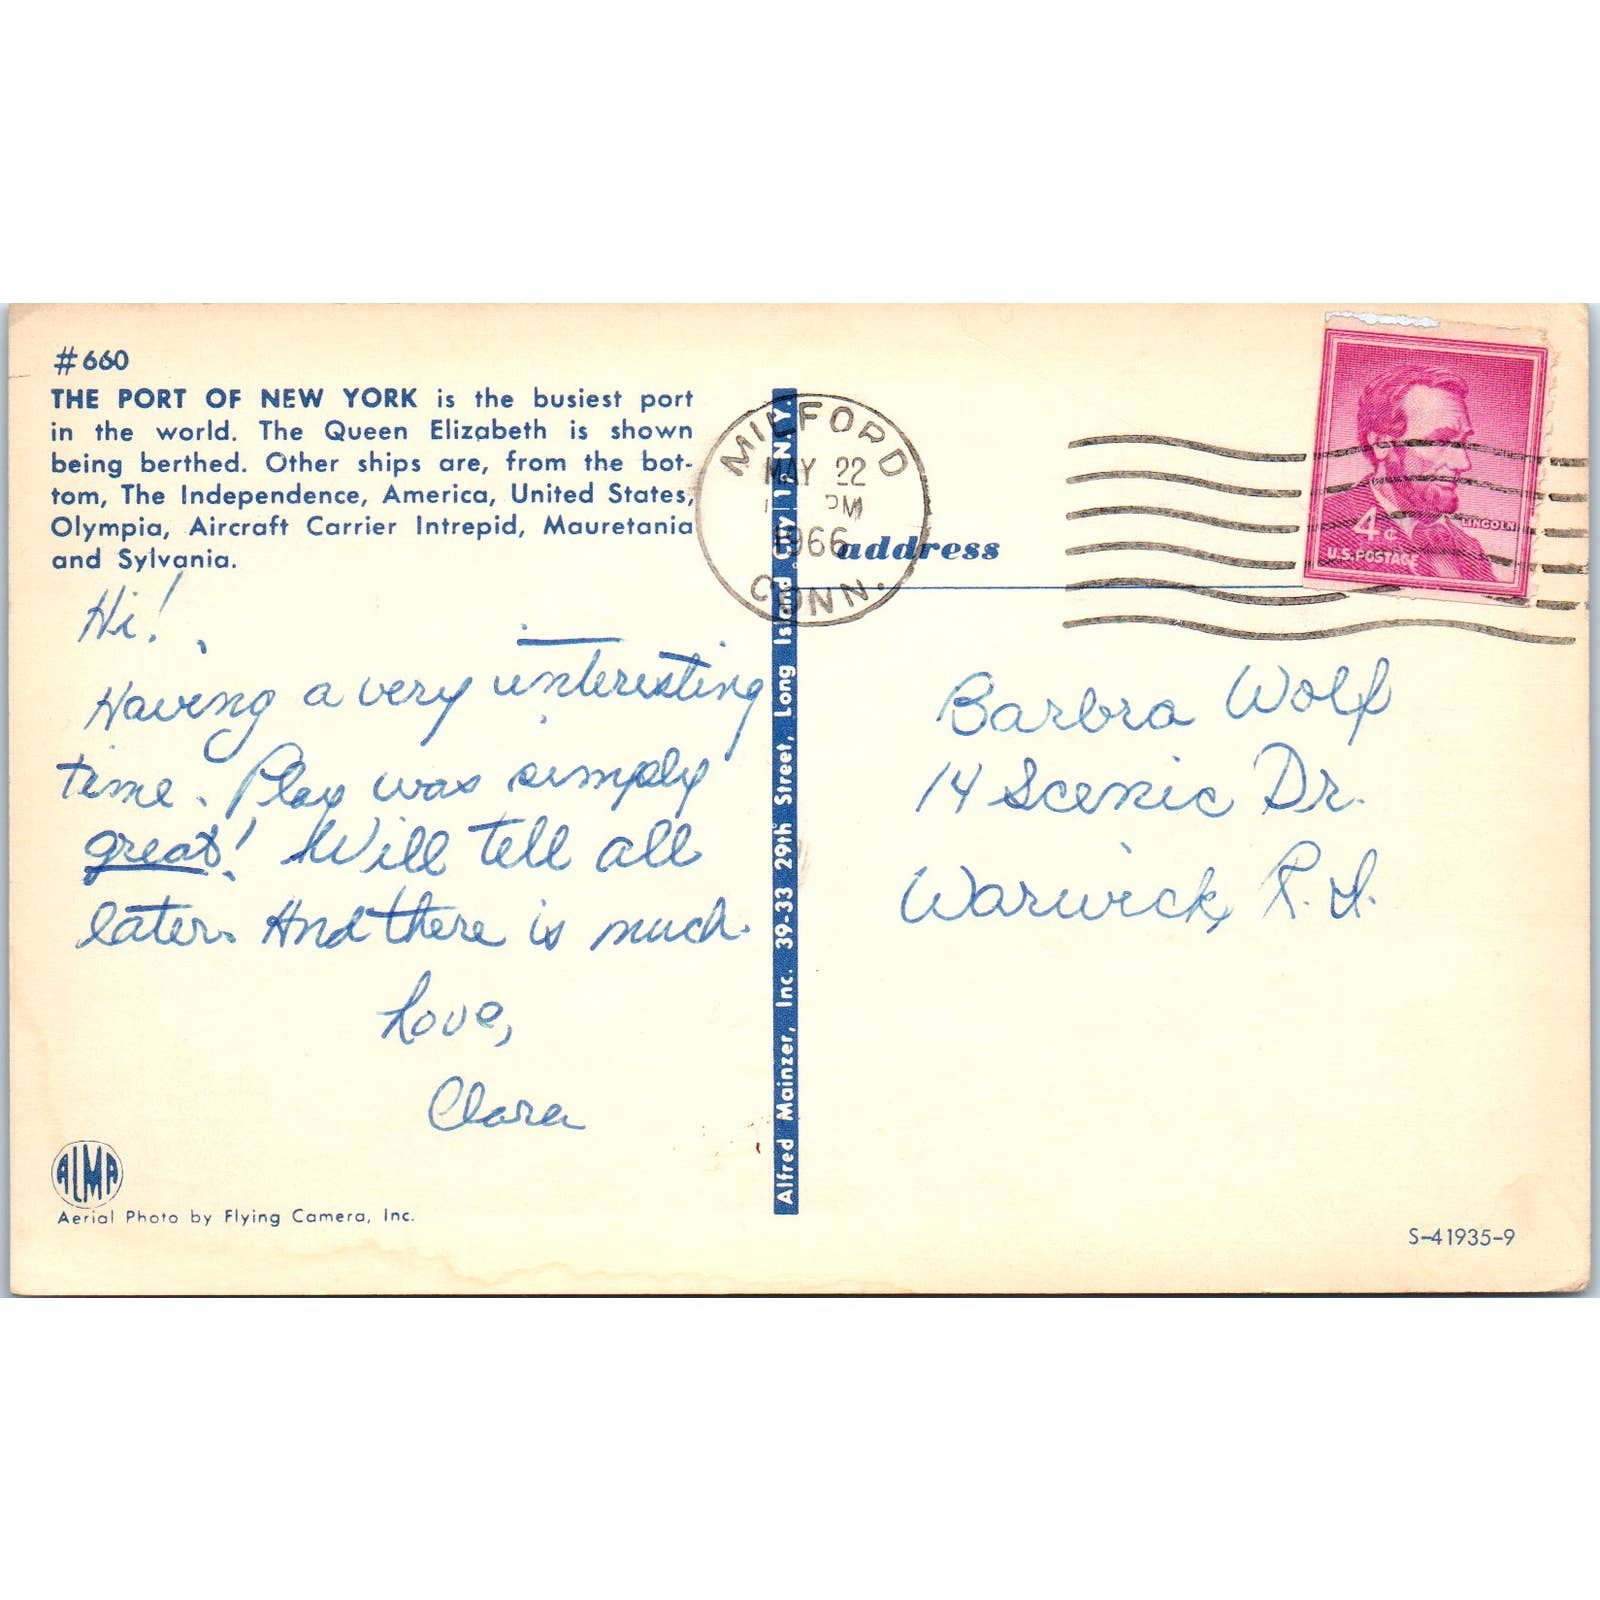 #660
THE PORT OF NEW YORK is the busiest port
in the world. The Queen Elizabeth is shown
being berthed. Other ships are, from the bot-
tom, The Independence, America, United States,
Olympia, Aircraft Carrier Intrepid, Mauretania
and Sylvania.
Hi!
Having a very interesting
time. Play was simply
great! Will tell all
later. And there is much.
Love,
Clara
ALMA
Aerial Photo by Flying Camera, Inc.
Alfred Mainzer, Inc. 39-33 29th Street, Long Island City 1, N.Y.
MILFORD
MAY 22
PM
1966
CONN.
address
4¢
LINCOLN
U.S. POSTAGE
Barbra Wolf
14 Scenic Dr.
Warwick, R.I.
S-41935-9